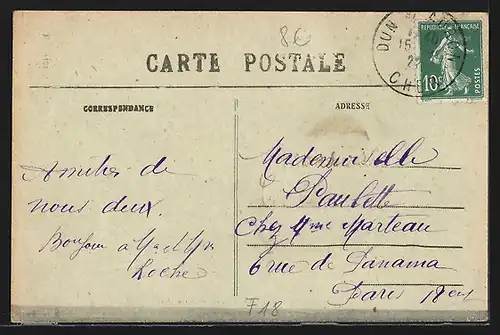 80
CARTE POSTALE
DUN
CHER
REPUBLIQUE FRANÇAISE
10c
POSTES
CORRESPONDANCE
ADRESSE
Amitiés de
nous deux.
Bonjour à Mr et Mme
Mademoiselle
Paulette
Chez Mme Marteau
6 rue de Panama
Paris 18em
F18